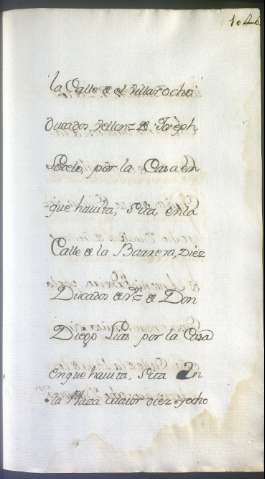 la Calle de el Villar ocho
Ducados Vellon = D. Joseph
por la Casa en
que havita, Sita en la
Calle de la Barrera, Diez
Ducados de rn = de Don
Diego Luis por la Casa
en que havita, Sita En
la Plaza diez y ocho